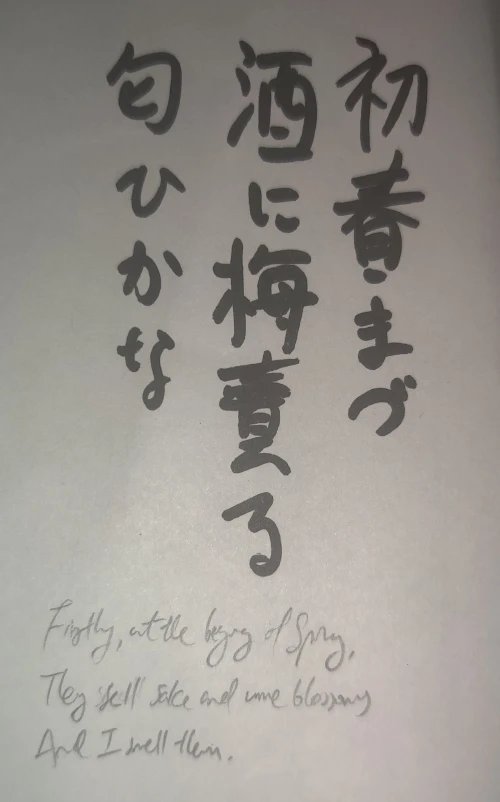 初春まづ
酒に梅賣る
匂ひかな
Firstly, at the begining of Spring,
They sell sake and ume blossoms
And I smell them.